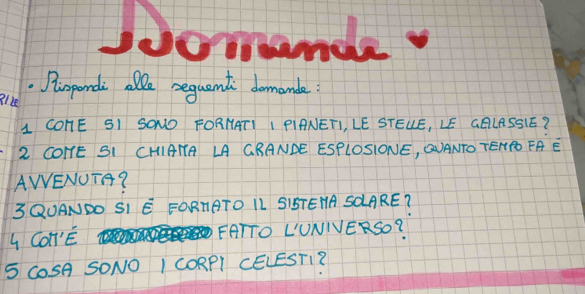 Domande
• Rispondi alle seguenti domande:
1 COME SI SONO FORMATI I PIANETI, LE STELLE, LE GALASSIE?
2 COME SI CHIAMA LA GRANDE ESPLOSIONE, QUANTO TEMPO FA È
AVVENUTA?
3 QUANDO SI È FORMATO IL SISTEMA SOLARE?
4 COM'È FATTO L'UNIVERSO?
5 COSA SONO I CORPI CELESTI?